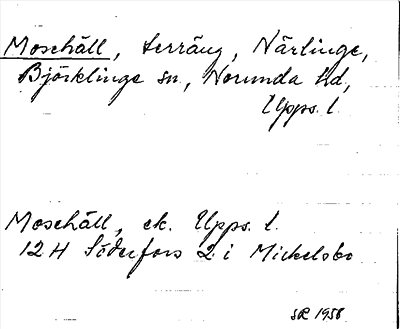 Mosehäll, terräng, Närlinge,
Björklinge sn, Norunda hd,
Upps. l.
Mosehäll, ek. Upps. l.
12 H Söderfors 2 i Mickelsbo
SR 1958